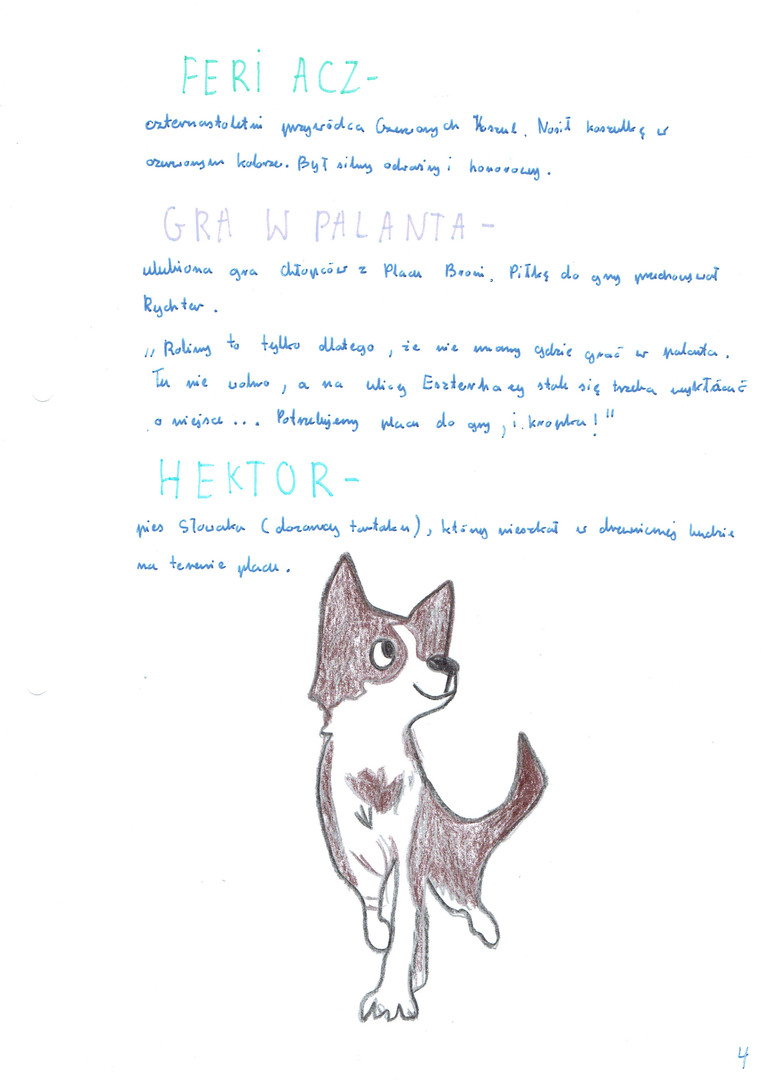 FERI ACZ-
czternastoletni przywódca Czerwonych Koszul. Nosił koszulkę w
czerwonym kolorze. Był silny odważny i honorowy.
GRA W PALANTA-
ulubiona gra chłopców z Placu Broni. Piłkę do gry przechowywał
Rychter.
„Robimy to tylko dlatego, że nie mamy gdzie grać w palanta.
Tu nie wolno, a na ulicy Eszterhazy stale się trzeba wykłócać
o miejsce... Potrzebujemy placu do gry, i kropka!"
HEKTOR-
pies Słowaka (dozorcy tartaku), który mieszkał w drewnianej budzie
na terenie placu.
4